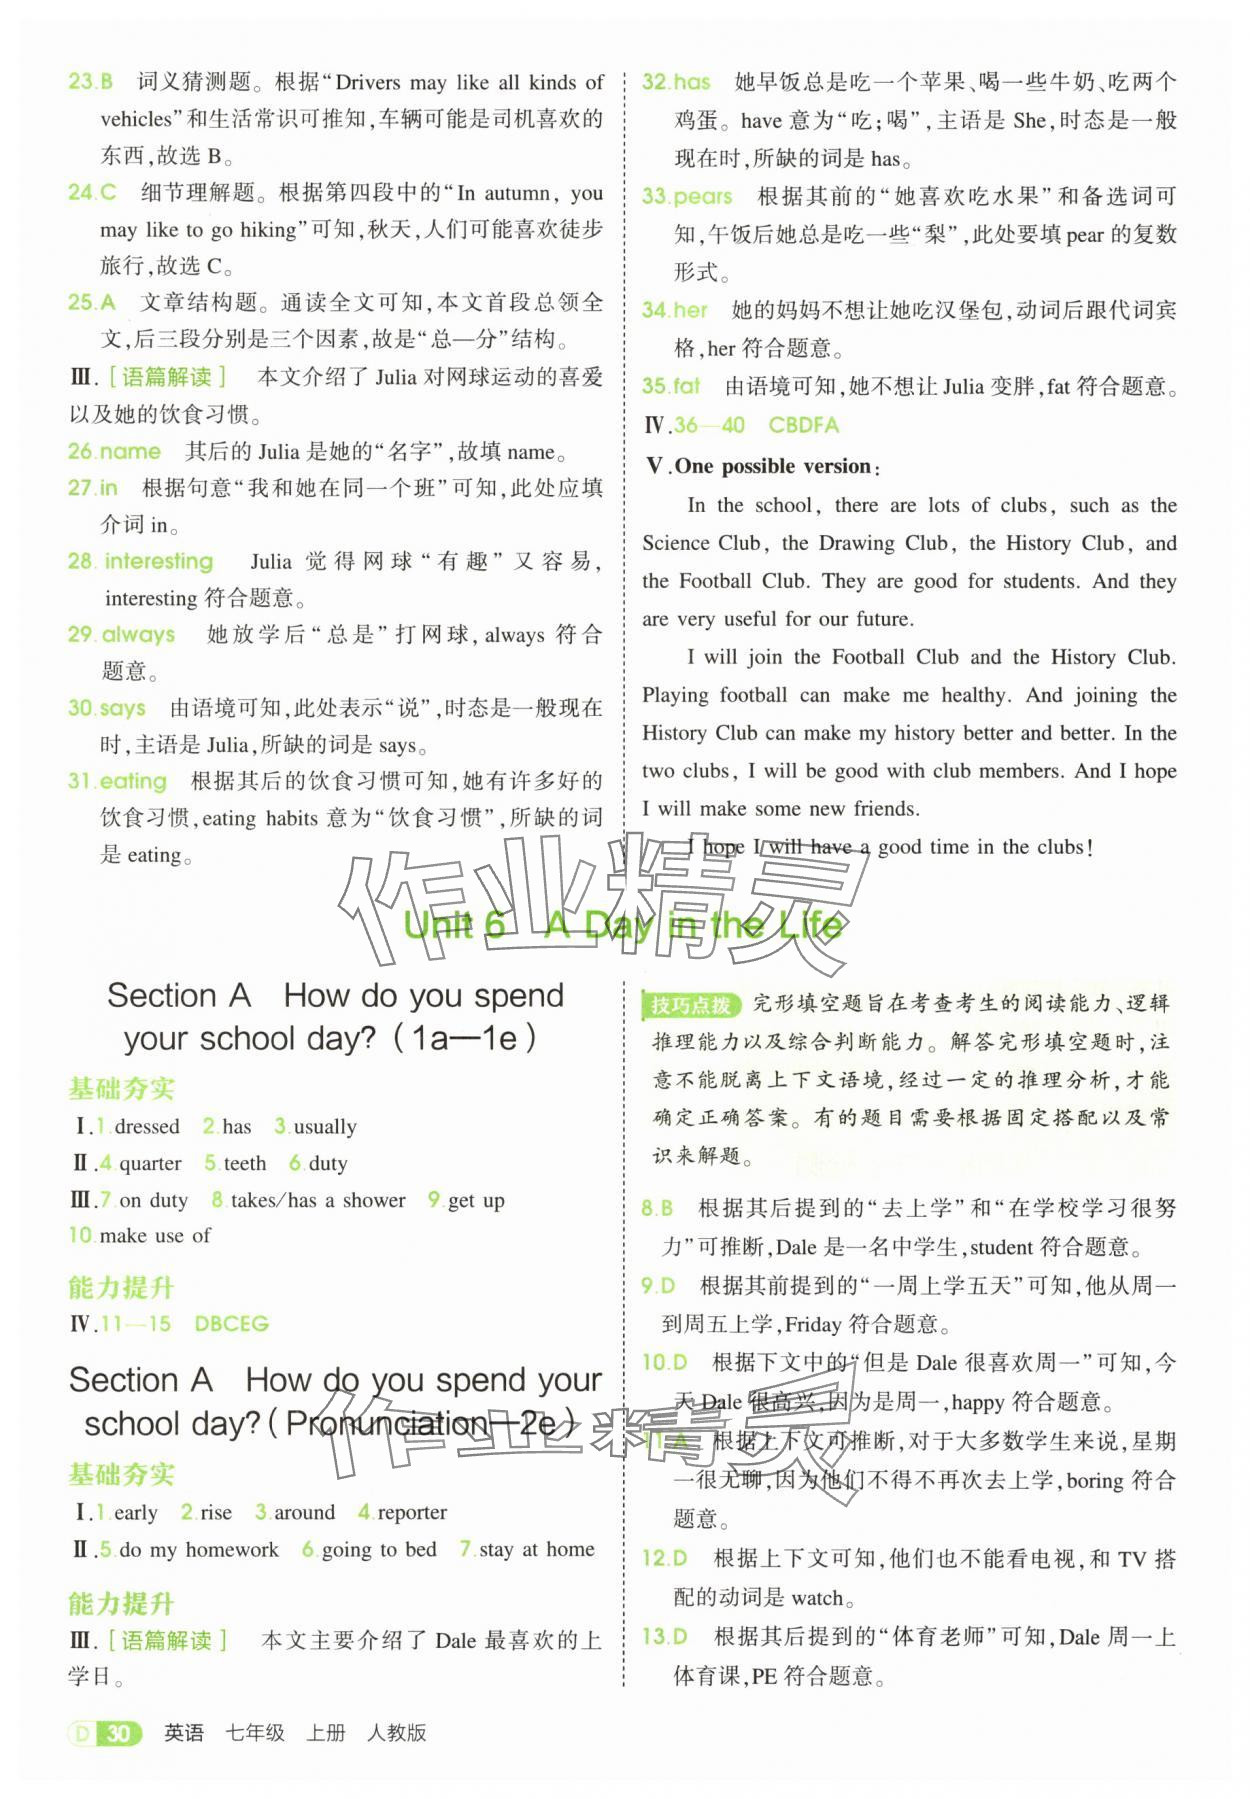 23.B 词义猜测题。根据“Drivers may like all kinds of
vehicles”和生活常识可推知,车辆可能是司机喜欢的
东西,故选 B。
24.C 细节理解题。根据第四段中的“In autumn, you
may like to go hiking”可知,秋天,人们可能喜欢徒步
旅行,故选 C。
25.A 文章结构题。通读全文可知,本文首段总领全
文,后三段分别是三个因素,故是“总—分”结构。
Ⅲ.[语篇解读] 本文介绍了 Julia 对网球运动的喜爱
以及她的饮食习惯。
26.name 其后的 Julia 是她的“名字”,故填 name。
27.in 根据句意“我和她在同一个班”可知,此处应填
介词 in。
28. interesting Julia 觉得网球“有趣”又容易,
interesting 符合题意。
29.always 她放学后“总是”打网球,always 符合
题意。
30.says 由语境可知,此处表示“说”,时态是一般现在
时,主语是 Julia,所缺的词是 says。
31.eating 根据其后的饮食习惯可知,她有许多好的
饮食习惯,eating habits 意为“饮食习惯”,所缺的词
是 eating。
32.has 她早饭总是吃一个苹果、喝一些牛奶、吃两个
鸡蛋。have 意为“吃;喝”,主语是 She,时态是一般
现在时,所缺的词是 has。
33.pears 根据其前的“她喜欢吃水果”和备选词可
知,午饭后她总是吃一些“梨”,此处要填 pear 的复数
形式。
34.her 她的妈妈不想让她吃汉堡包,动词后跟代词宾
格,her 符合题意。
35.fat 由语境可知,她不想让 Julia 变胖,fat 符合题意。
Ⅳ.36—40 CBDFA
Ⅴ.One possible version:
In the school, there are lots of clubs, such as the
Science Club, the Drawing Club, the History Club, and
the Football Club. They are good for students. And they
are very useful for our future.
I will join the Football Club and the History Club.
Playing football can make me healthy. And joining the
History Club can make my history better and better. In the
two clubs, I will be good with club members. And I hope
I will make some new friends.
I hope I will have a good time in the clubs!
作业精灵
Unit 6 A Day in the Life
Section A How do you spend
your school day? (1a—1e)
基础夯实
Ⅰ.1.dressed 2.has 3.usually
Ⅱ.4.quarter 5.teeth 6.duty
Ⅲ.7.on duty 8.takes/has a shower 9.get up
10.make use of
能力提升
Ⅳ.11—15 DBCEG
Section A How do you spend your
school day? (Pronunciation—2e)
基础夯实
Ⅰ.1.early 2.rise 3.around 4.reporter
Ⅱ.5.do my homework 6.going to bed 7.stay at home
能力提升
Ⅲ.[语篇解读] 本文主要介绍了 Dale 最喜欢的上
学日。
技巧点拨 完形填空题旨在考查考生的阅读能力、逻辑
推理能力以及综合判断能力。解答完形填空题时,注
意不能脱离上下文语境,经过一定的推理分析,才能
确定正确答案。有的题目需要根据固定搭配以及常
识来解题。
8.B 根据其后提到的“去上学”和“在学校学习很努
力”可推断,Dale 是一名中学生,student 符合题意。
9.D 根据其前提到的“一周上学五天”可知,他从周一
到周五上学,Friday 符合题意。
10.D 根据下文中的“但是 Dale 很喜欢周一”可知,今
天 Dale 很高兴,因为是周一,happy 符合题意。
11.A 根据上下文可推断,对于大多数学生来说,星期
一很无聊,因为他们不得不再次去上学,boring 符合
题意。
12.D 根据上下文可知,他们也不能看电视,和 TV 搭
配的动词是 watch。
13.D 根据其后提到的“体育老师”可知,Dale 周一上
体育课,PE 符合题意。
作业精灵
D 30 英语 七年级 上册 人教版